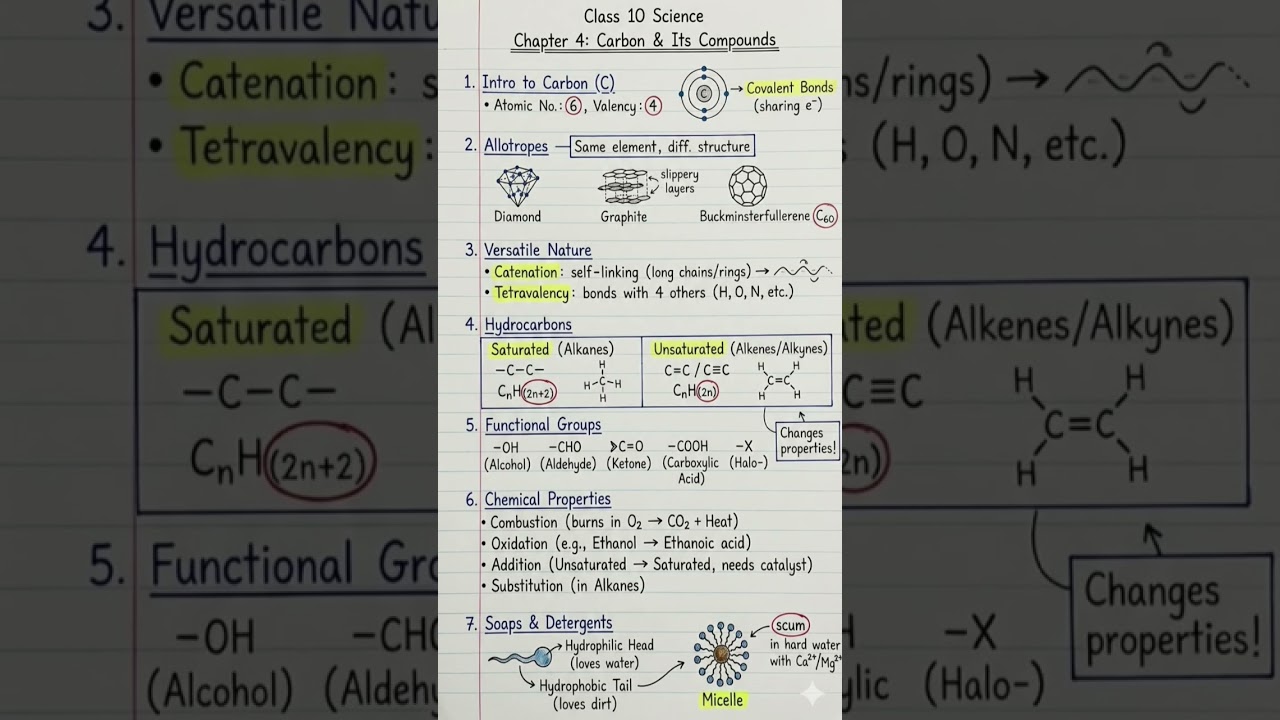 Class 10 Science
Chapter 4: Carbon & Its Compounds
1. Intro to Carbon (C)
• Atomic No.: 6, Valency: 4
C
→ Covalent Bonds
(sharing e⁻)
2. Allotropes — Same element, diff. structure
slippery
layers
Diamond
Graphite
Buckminsterfullerene C₆₀
3. Versatile Nature
• Catenation: self-linking (long chains/rings) →
• Tetravalency: bonds with 4 others (H, O, N, etc.)
4. Hydrocarbons
Saturated (Alkanes)
–C–C–
CₙH(2n+2)
H
H–C–H
H
Unsaturated (Alkenes/Alkynes)
C=C / C≡C
CₙH(2n)
H H
C=C
H H
Changes
properties!
5. Functional Groups
–OH –CHO >C=O –COOH –X
(Alcohol) (Aldehyde) (Ketone) (Carboxylic (Halo-)
Acid)
6. Chemical Properties
• Combustion (burns in O₂ → CO₂ + Heat)
• Oxidation (e.g., Ethanol → Ethanoic acid)
• Addition (Unsaturated → Saturated, needs catalyst)
• Substitution (in Alkanes)
7. Soaps & Detergents
→ Hydrophilic Head
(loves water)
→ Hydrophobic Tail
(loves dirt)
Micelle
scum
in hard water
with Ca²⁺/Mg²⁺
3. Versatile Natu
• Catenation: s
• Tetravalency:
4. Hydrocarbons
Saturated (Al
–C–C–
CₙH(2n+2)
5. Functional Gro
–OH –CHO
(Alcohol) (Aldehy
ns/rings) →
(H, O, N, etc.)
ated (Alkenes/Alkynes)
C≡C
H H
C=C
H H
2n)
Changes
properties!
–X
ylic (Halo-)